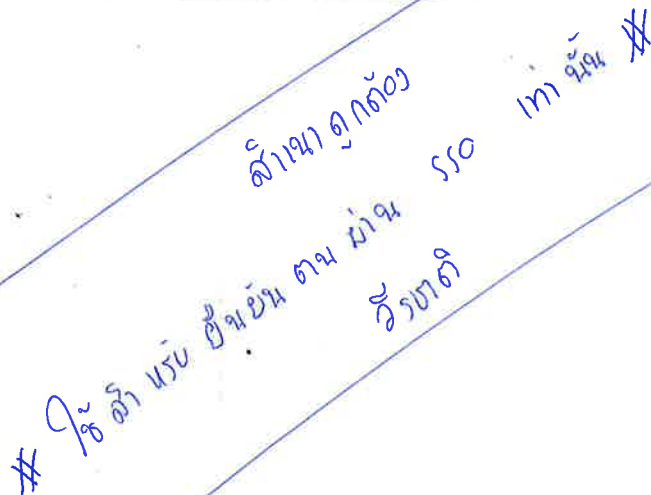 สำเนาถูกต้อง
# ใช้สำหรับ ยืนยัน ตน ผ่าน sso เท่านั้น #
วีรชาติ